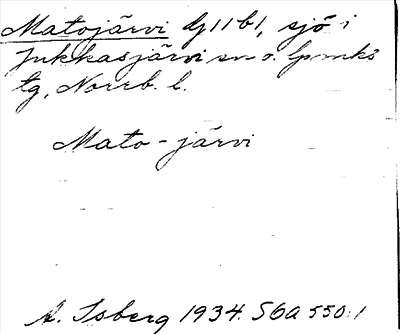 Matojärvi Dj11b1, sjö i
Jukkasjärvi sn o. lpmks
tg, Norrb. l.
Mato-järvi
A. Isberg 1934. S6a 550:1